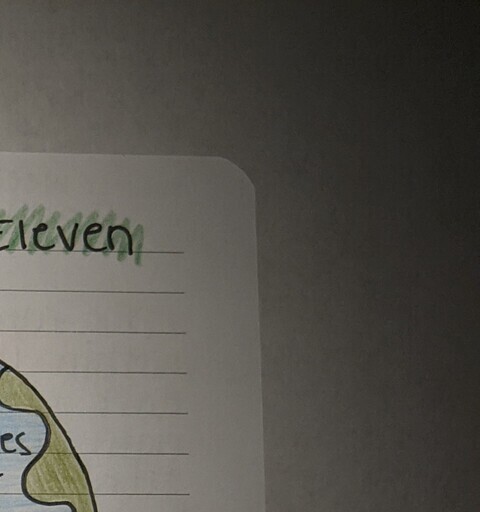 Eleven
es